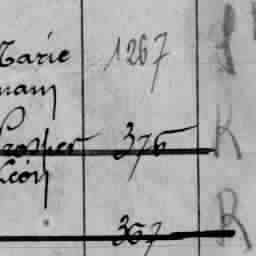 Marie 1267
mann
Prosper 376 K
Léon
367 R